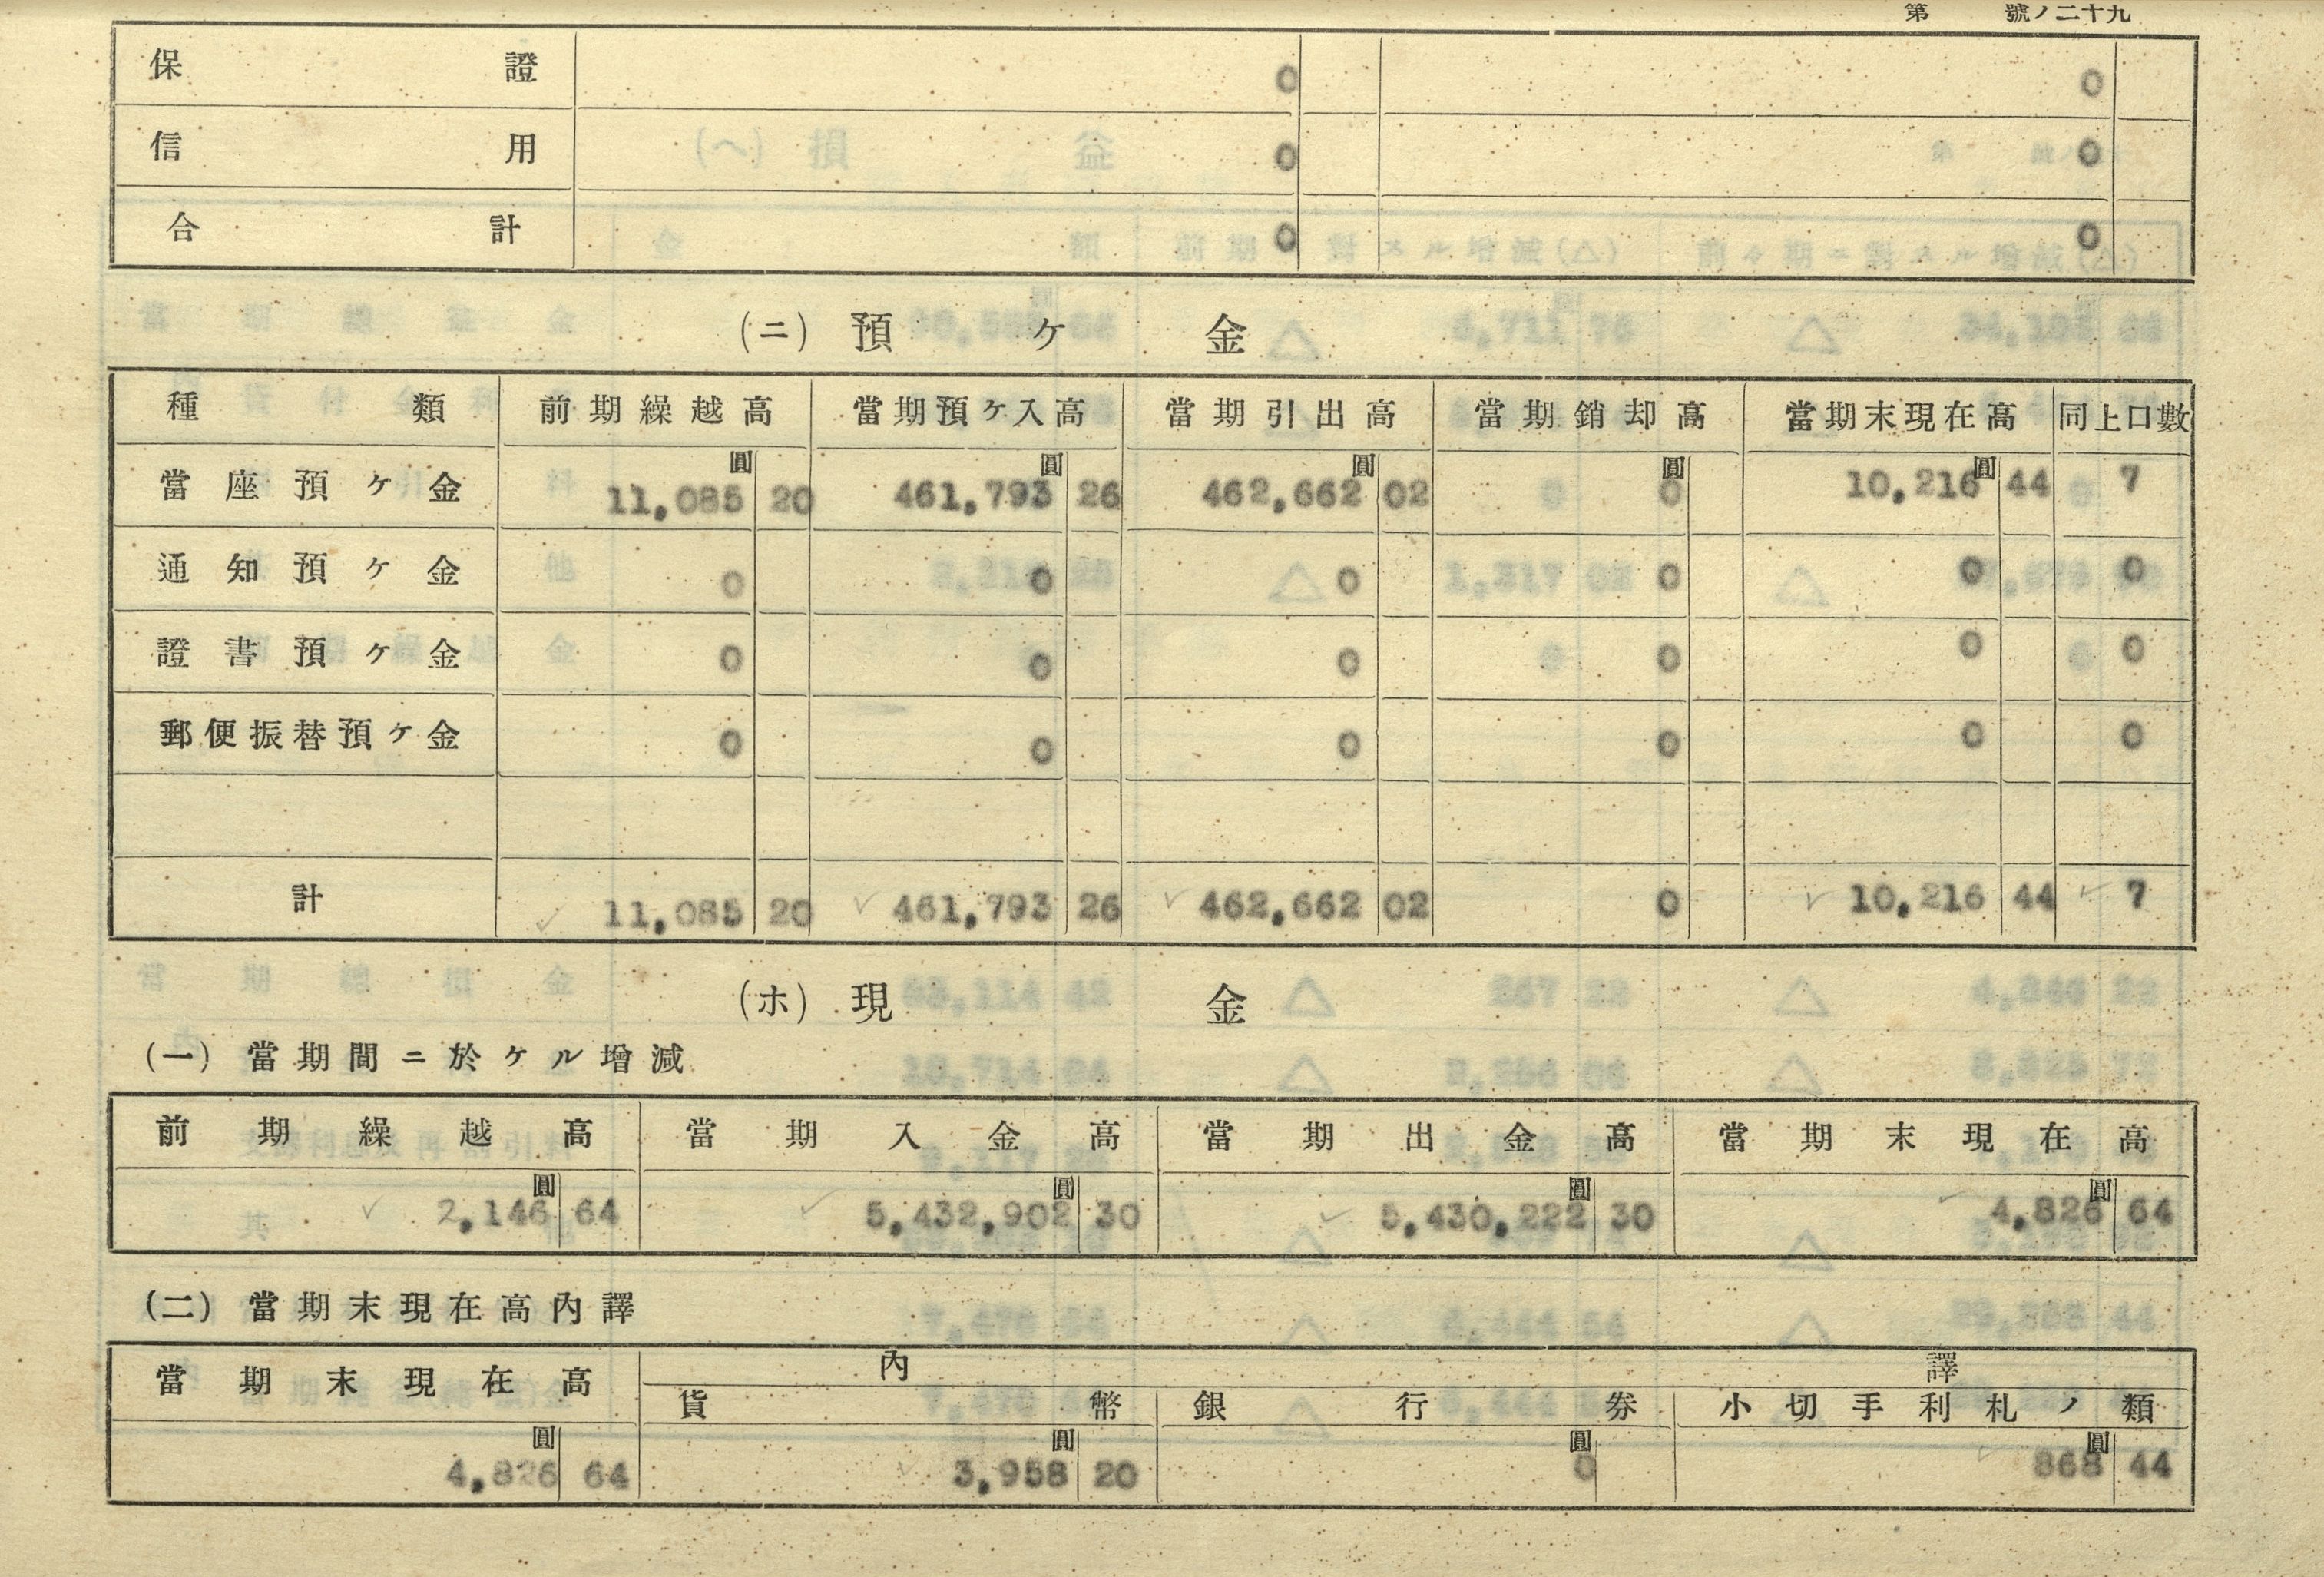 第 號ノ二十九
保證 0 0
信用 0 0
合計 0 0
(ニ) 預ケ金
種類 前期繰越高 當期預ケ入高 當期引出高 當期銷却高 當期末現在高 同上口數
圓 圓 圓 圓 圓
當座預ケ金 11,085 20 461,793 26 462,662 02 0 10,216 44 7
通知預ケ金 0 0 0 0 0 0
證書預ケ金 0 0 0 0 0 0
郵便振替預ケ金 0 0 0 0 0 0
計 11,085 20 461,793 26 462,662 02 0 10,216 44 7
(ホ) 現金
(一) 當期間ニ於ケル增減
前期繰越高 當期入金高 當期出金高 當期末現在高
圓 圓 圓 圓
2,146 64 5,432,902 30 5,430,222 30 4,826 64
(二) 當期末現在高內譯
當期末現在高 內譯
貨幣 銀行券 小切手利札ノ類
圓 圓 圓 圓
4,826 64 3,958 20 0 868 44